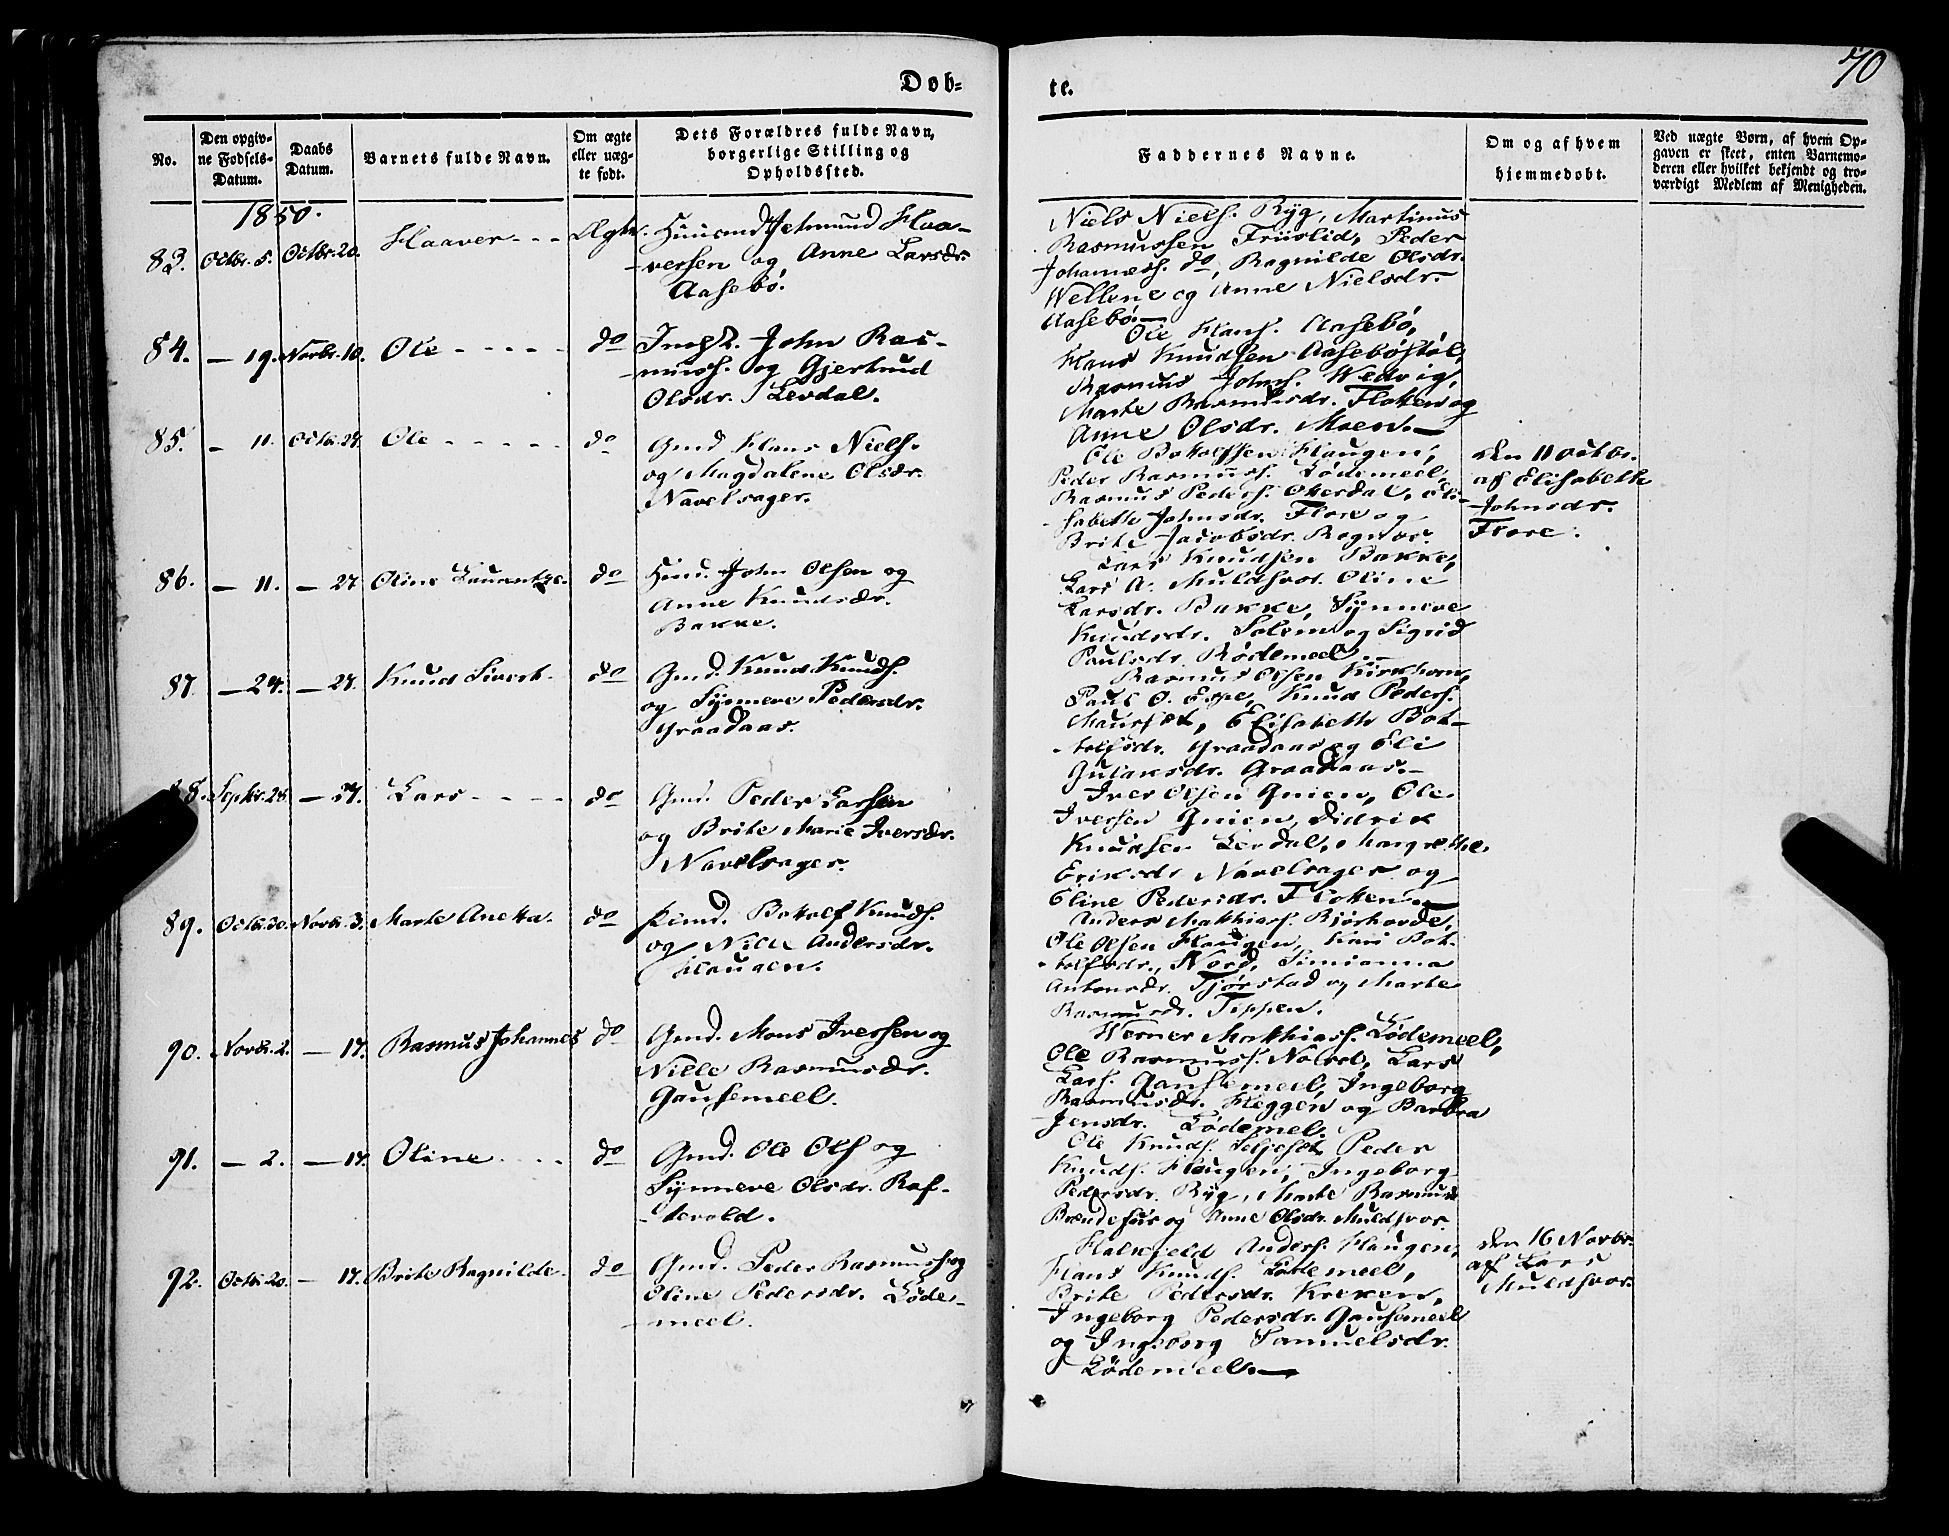 70
Døb-
te.
No.
Den opgiv-
ne Fødsels-
Datum.
Daabs
Datum.
Barnets fulde Navn.
Om ægte
eller uæg-
te født.
Dets Forældres fulde Navn,
borgerlige Stilling og
Opholdssted.
Faddernes Navne.
Om og af hvem
hjemmedøbt.
Ved uægte Børn, af hvem Op-
gaven er skeet, enten Barnemo-
deren eller hvilket bekjendt og tro-
værdigt Medlem af Menigheden.
1850.
83. Octbr. 5. Octbr. 20. Haaver - - - Ægte.
Huusmd Jetmund Haa-
versen og Anne Larsdr.
Aasebø.
Niels Niels. Ryg, Martinus
Rasmussen Friislid, Peder
Johanness. do, Ragnilde Olsdr.
Wellene og Anne Nielsdr.
Aasebø.—
84. — 19. Novbr. 10. Ole - - - - - do
John Ras-
muss. og Gjertrud
Olsdr. Levdal.
Ole Hans. Aasebø,
Hans Knudsen Aasebøstøl,
Rasmus Johns. Wedvig,
Marte Rasmusdr. Flotten og
Anne Olsdr. Moen.—
85. — 11. Octbr. 27. Ole - - - - - do
Gmd Hans Niels.
og Magdalene Olsdr.
Navelsager.
Ole Botolfsen Haugen,
Peder Rasmuss. Lødemeel,
Rasmus Peders. Otterdal, Eli-
sabeth Johnsdr. Flore og
Brite Jacobsdr.
Den 11 Octbr.
af Elisabeth
Johnsdr.
Flore.
86. — 11. — 27. Oline Laurentze. do
Huud. John Olsen og
Anne Knudsdr.
Bakke.
Lars Knudsen Bakke,
Lars A. Muldsvor. Oline
Larsdr. Bakke, Synneve
Knudsdr. Solem og Sigrid
Paulsdr. Rødemeel.—
87. — 24. — 27. Knud Sivert. do
Gmd. Knud Knuds.
og Synneve Pedersdr.
Graadaas.
Rasmus Olsen Kirkhorn,
Paul O. Espe, Knud Peders.
Maurset, Elisabeth Bot-
tolfsdr. Graadaas og Eli
Gulaksdr. Graadaas.—
88. Septbr. 28. — 27. Lars - - - - do
Gmd. Peder Larsen
og Brite Marie Iversdr.
Navelsager.
Iver Olsen Qvien, Ole
Iversen Qvien, Didrik
Knudsen Levdal, Margrethe
Eriksdr Navelsager og
Eline Pedersdr. Flotten.—
89. Octbr. 30. Novbr. 3. Marte Anetta. do
Bottolf Knuds.
og Nille Andersdr.
Haugen.
Anders Matthiass. Bjørhovde,
Ole Olsen Haugen, Kari Bot-
tolfsdr., Nord, Simianna
Antonsdr. Tjørstad og Marte
Rasmusdr. Tippen.
90. Novbr. 2. — 17. Rasmus Johannes do
Gmd. Mons Iversen og
Nille Rasmusdr.
Gausemeel.
Werner Matthiass. Lødemeel,
Ole Rasmuss. Nolvel, Lars
Lars. Gausemeel, Ingeborg
Rasmusdr. Heggen og Barbra
Jensdr. Lødemel.
91. — 2. — 17. Oline - - - - do
Gmd. Ole Ols. og
Synneve Olsdr. Raf-
tevold.
Ole Knuds. Seljeset, Peder
Knuds. Haugen, Ingeborg
Pedersdr. Ryg, Marte Rasmus
og Anne Olsdr. Muldsvor.
92. Octbr. 20. — 17. Brite Ragnilde. do
Gmd. Peder Rasmuss. og
Oline Pedersdr. Løde-
meel.
Anders. Haugen,
Hans Knuds. Lødemeel,
Brite Pedersdr. Kreken,
Ingeborg Pedersdr. Gausemeel
og Ingeborg Samuelsdr.
Lødemeel.—
Den 16 Novbr.
af Lars
Muldsvor.